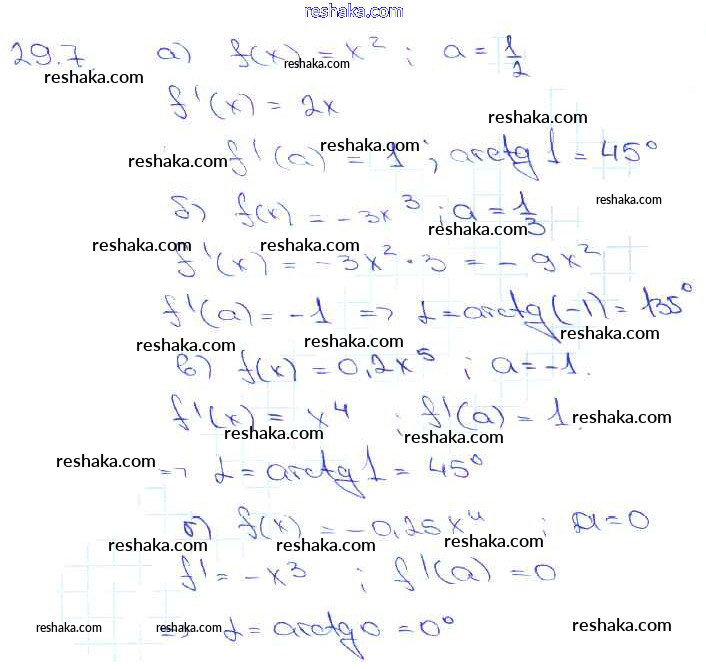 reshaka.com
29.7. а) f(x) = x² ; a = 1/2
reshaka.com reshaka.com
f'(x) = 2x
reshaka.com
reshaka.com f'(a) = 1 ; arctg 1 = 45°
reshaka.com
б) f(x) = -3x³ ; a = 1/3
reshaka.com
reshaka.com reshaka.com reshaka.com
f'(x) = -3x² · 3 = -9x²
f'(a) = -1 => α = arctg(-1) = 135°
reshaka.com reshaka.com reshaka.com
в) f(x) = 0,2x⁵ ; a = -1.
f'(x) = x⁴ ; f'(a) = 1. reshaka.com
reshaka.com reshaka.com
reshaka.com => α = arctg 1 = 45°
reshaka.com
б) f(x) = -0,25x⁴ ; a = 0
reshaka.com reshaka.com reshaka.com
f' = -x³ ; f'(a) = 0
reshaka.com reshaka.com => α = arctg 0 = 0° reshaka.com